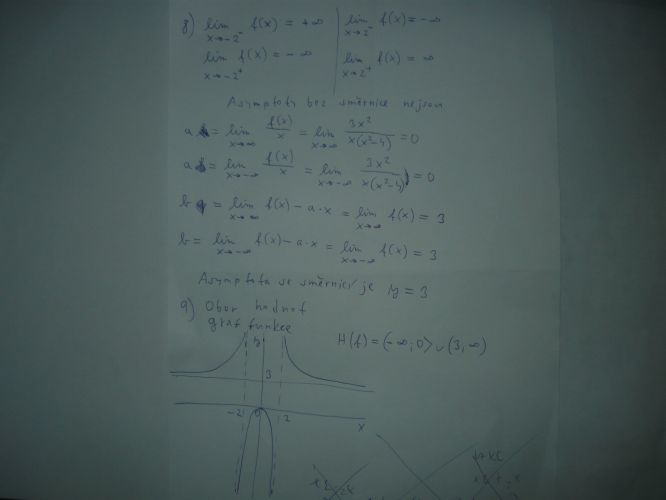 8) lim x→-2⁻ f(x) = +∞ | lim x→2⁻ f(x) = -∞
lim x→-2⁺ f(x) = -∞ | lim x→2⁺ f(x) = ∞
Asymptoty bez směrnice nejsou
a = lim x→∞ f(x)/x = lim x→∞ 3x²/x(x²-4) = 0
a = lim x→-∞ f(x)/x = lim x→-∞ 3x²/x(x²-4) = 0
b = lim x→∞ f(x) - a·x = lim x→∞ f(x) = 3
b = lim x→-∞ f(x) - a·x = lim x→-∞ f(x) = 3
Asymptota se směrnicí je y = 3
9) Obor hodnot
graf funkce
H(f) = (-∞; 0⟩ ∪ (3, ∞)
y
3
-2 0 2 x